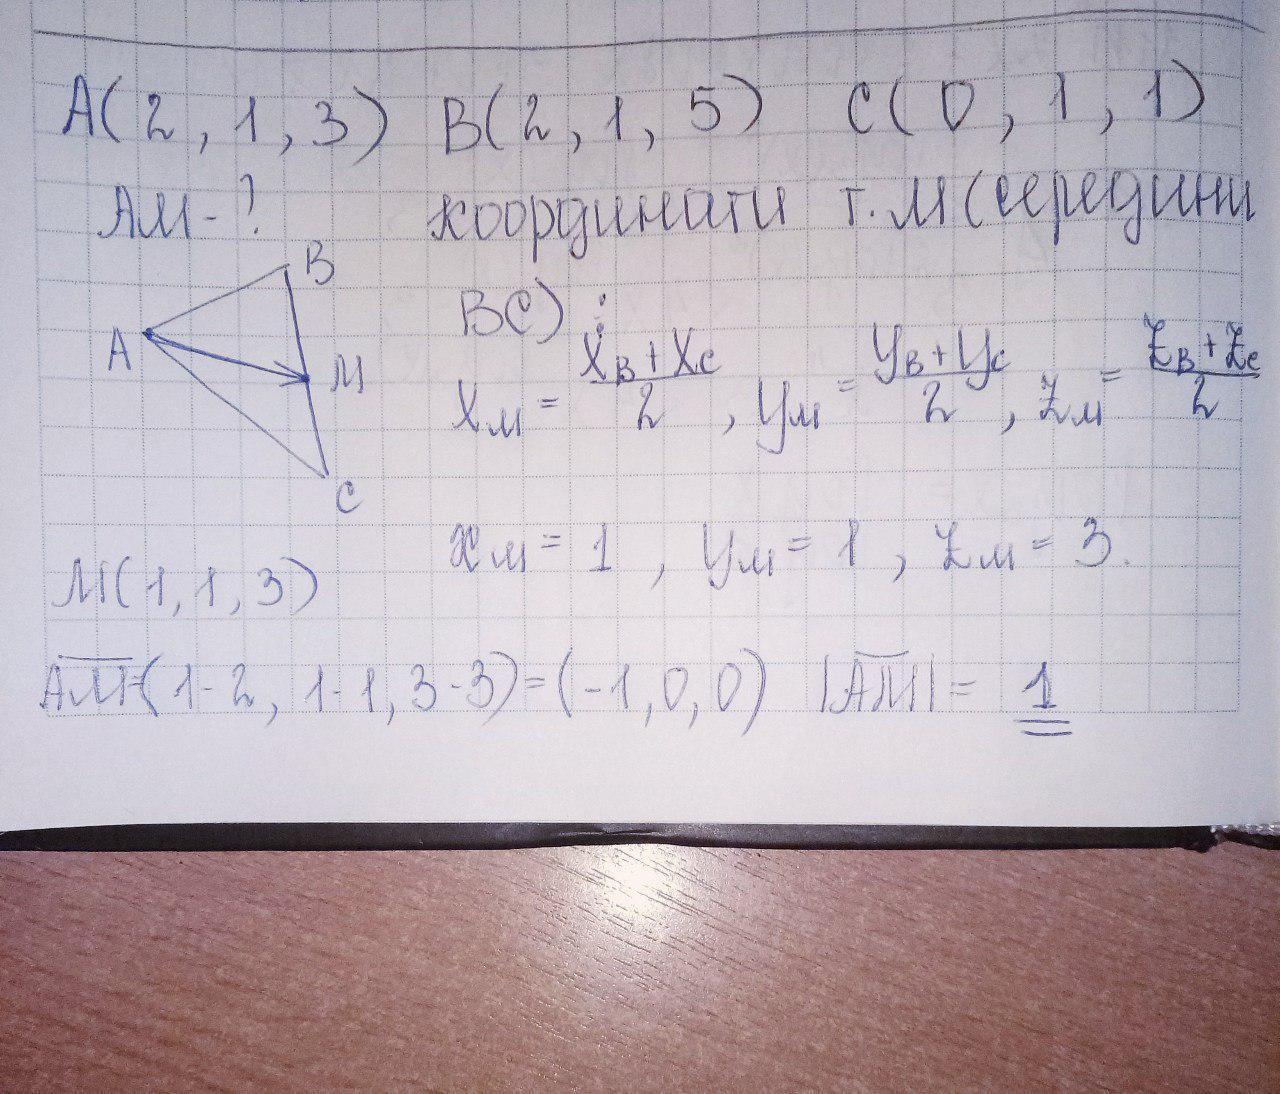 A(2, 1, 3) B(2, 1, 5) C(0, 1, 1)
AM - ? координати т. M (середини
BC):
B
A
M
C
x_M = (x_B + x_C)/2, y_M = (y_B + y_C)/2, z_M = (z_B + z_C)/2
x_M = 1, y_M = 1, z_M = 3.
M(1, 1, 3)
A̅M̅=(1-2, 1-1, 3-3)=(-1, 0, 0) |A̅M̅| = 1